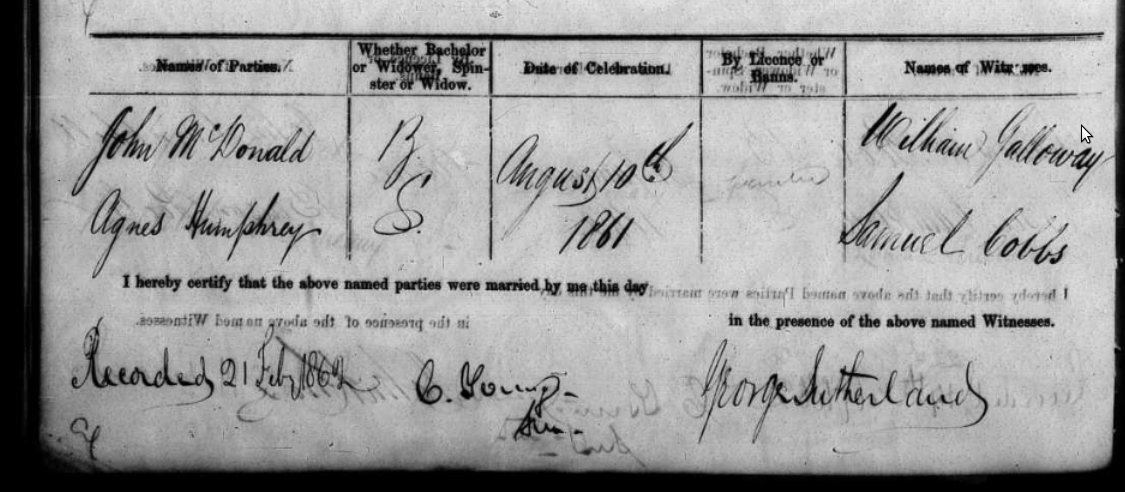 Names of Parties. Whether Bachelor or Widower, Spinster or Widow. Date of Celebration. By Licence or Banns. Names of Witnesses.
John McDonald B. August 10th William Galloway
Agnes Humphrey S. 1861 Samuel Cobbs
I hereby certify that the above named parties were married by me this day
in the presence of the above named Witnesses.
Recorded 21 Feby 1862 C. George Sutherland